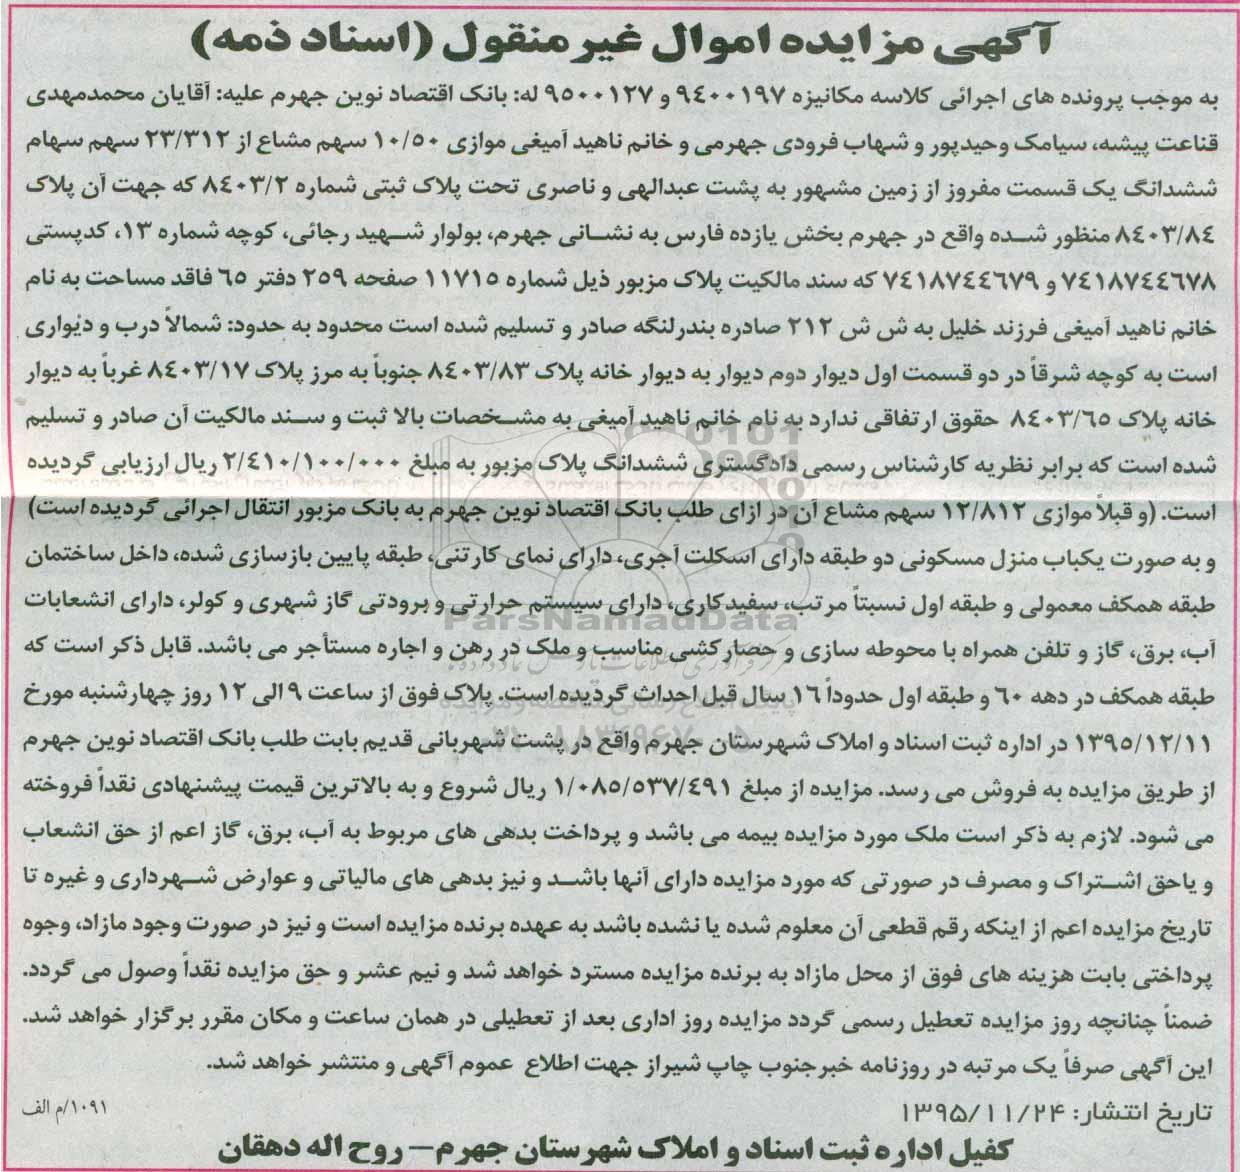 آگهی مزایده اموال غیر منقول (اسناد ذمه)
به موجب پرونده های اجرائی کلاسه مکانیزه ۹۴۰۰۱۹۷ و ۹۵۰۰۱۲۷ له: بانک اقتصاد نوین جهرم علیه: آقایان محمدمهدی
قناعت پیشه، سیامک وحیدپور و شهاب فرودی جهرمی و خانم ناهید آمیغی موازی ۱۰/۵۰ سهم مشاع از ۲۳/۳۱۲ سهم سهام
ششدانگ یک قسمت مفروز از زمین مشهور به پشت عبدالهی و ناصری تحت پلاک ثبتی شماره ۸۴۰۳/۲ که جهت آن پلاک
۸۴۰۳/۸۴ منظور شده واقع در جهرم بخش یازده فارس به نشانی جهرم، بولوار شهید رجائی، کوچه شماره ۱۳، کدپستی
۷۴۱۸۷۴۴۶۷۸ و ۷۴۱۸۷۴۴۶۷۹ که سند مالکیت پلاک مزبور ذیل شماره ۱۱۷۱۵ صفحه ۲۵۹ دفتر ۶۵ فاقد مساحت به نام
خانم ناهید آمیغی فرزند خلیل به ش ش ۲۱۲ صادره بندرلنگه صادر و تسلیم شده است محدود به حدود: شمالاً درب و دیواری
است به کوچه شرقاً در دو قسمت اول دیوار دوم دیوار به دیوار خانه پلاک ۸۴۰۳/۸۳ جنوباً به مرز پلاک ۸۴۰۳/۱۷ غرباً به دیوار
خانه پلاک ۸۴۰۳/۶۵ حقوق ارتفاقی ندارد به نام خانم ناهید آمیغی به مشخصات بالا ثبت و سند مالکیت آن صادر و تسلیم
شده است که برابر نظریه کارشناس رسمی دادگستری ششدانگ پلاک مزبور به مبلغ ۲/۴۱۰/۱۰۰/۰۰۰ ریال ارزیابی گردیده
است. (و قبلاً موازی ۱۲/۸۱۲ سهم مشاع آن در ازای طلب بانک اقتصاد نوین جهرم به بانک مزبور انتقال اجرائی گردیده است)
و به صورت یکباب منزل مسکونی دو طبقه دارای اسکلت آجری، دارای نمای کارتنی، طبقه پایین بازسازی شده، داخل ساختمان
طبقه همکف معمولی و طبقه اول نسبتاً مرتب، سفیدکاری، دارای سیستم حرارتی و برودتی گاز شهری و کولر، دارای انشعابات
ParsNamadData
آب، برق، گاز و تلفن همراه با محوطه سازی و حصارکشی مناسب و ملک در رهن و اجاره مستأجر می باشد. قابل ذکر است که
طبقه همکف در دهه ۶۰ و طبقه اول حدوداً ۱۶ سال قبل احداث گردیده است. پلاک فوق از ساعت ۹ الی ۱۲ روز چهارشنبه مورخ
۱۳۹۵/۱۲/۱۱ در اداره ثبت اسناد و املاک شهرستان جهرم واقع در پشت شهربانی قدیم بابت طلب بانک اقتصاد نوین جهرم
از طریق مزایده به فروش می رسد. مزایده از مبلغ ۱/۰۸۵/۵۳۷/۴۹۱ ریال شروع و به بالاترین قیمت پیشنهادی نقداً فروخته
می شود. لازم به ذکر است ملک مورد مزایده بیمه می باشد و پرداخت بدهی های مربوط به آب، برق، گاز اعم از حق انشعاب
و یاحق اشتراک و مصرف در صورتی که مورد مزایده دارای آنها باشد و نیز بدهی های مالیاتی و عوارض شهرداری و غیره تا
تاریخ مزایده اعم از اینکه رقم قطعی آن معلوم شده یا نشده باشد به عهده برنده مزایده است و نیز در صورت وجود مازاد، وجوه
پرداختی بابت هزینه های فوق از محل مازاد به برنده مزایده مسترد خواهد شد و نیم عشر و حق مزایده نقداً وصول می گردد.
ضمناً چنانچه روز مزایده تعطیل رسمی گردد مزایده روز اداری بعد از تعطیلی در همان ساعت و مکان مقرر برگزار خواهد شد.
این آگهی صرفاً یک مرتبه در روزنامه خبرجنوب چاپ شیراز جهت اطلاع عموم آگهی و منتشر خواهد شد.
تاریخ انتشار: ۱۳۹۵/۱۱/۲۴
۱۰۹۱/م الف
کفیل اداره ثبت اسناد و املاک شهرستان جهرم – روح اله دهقان